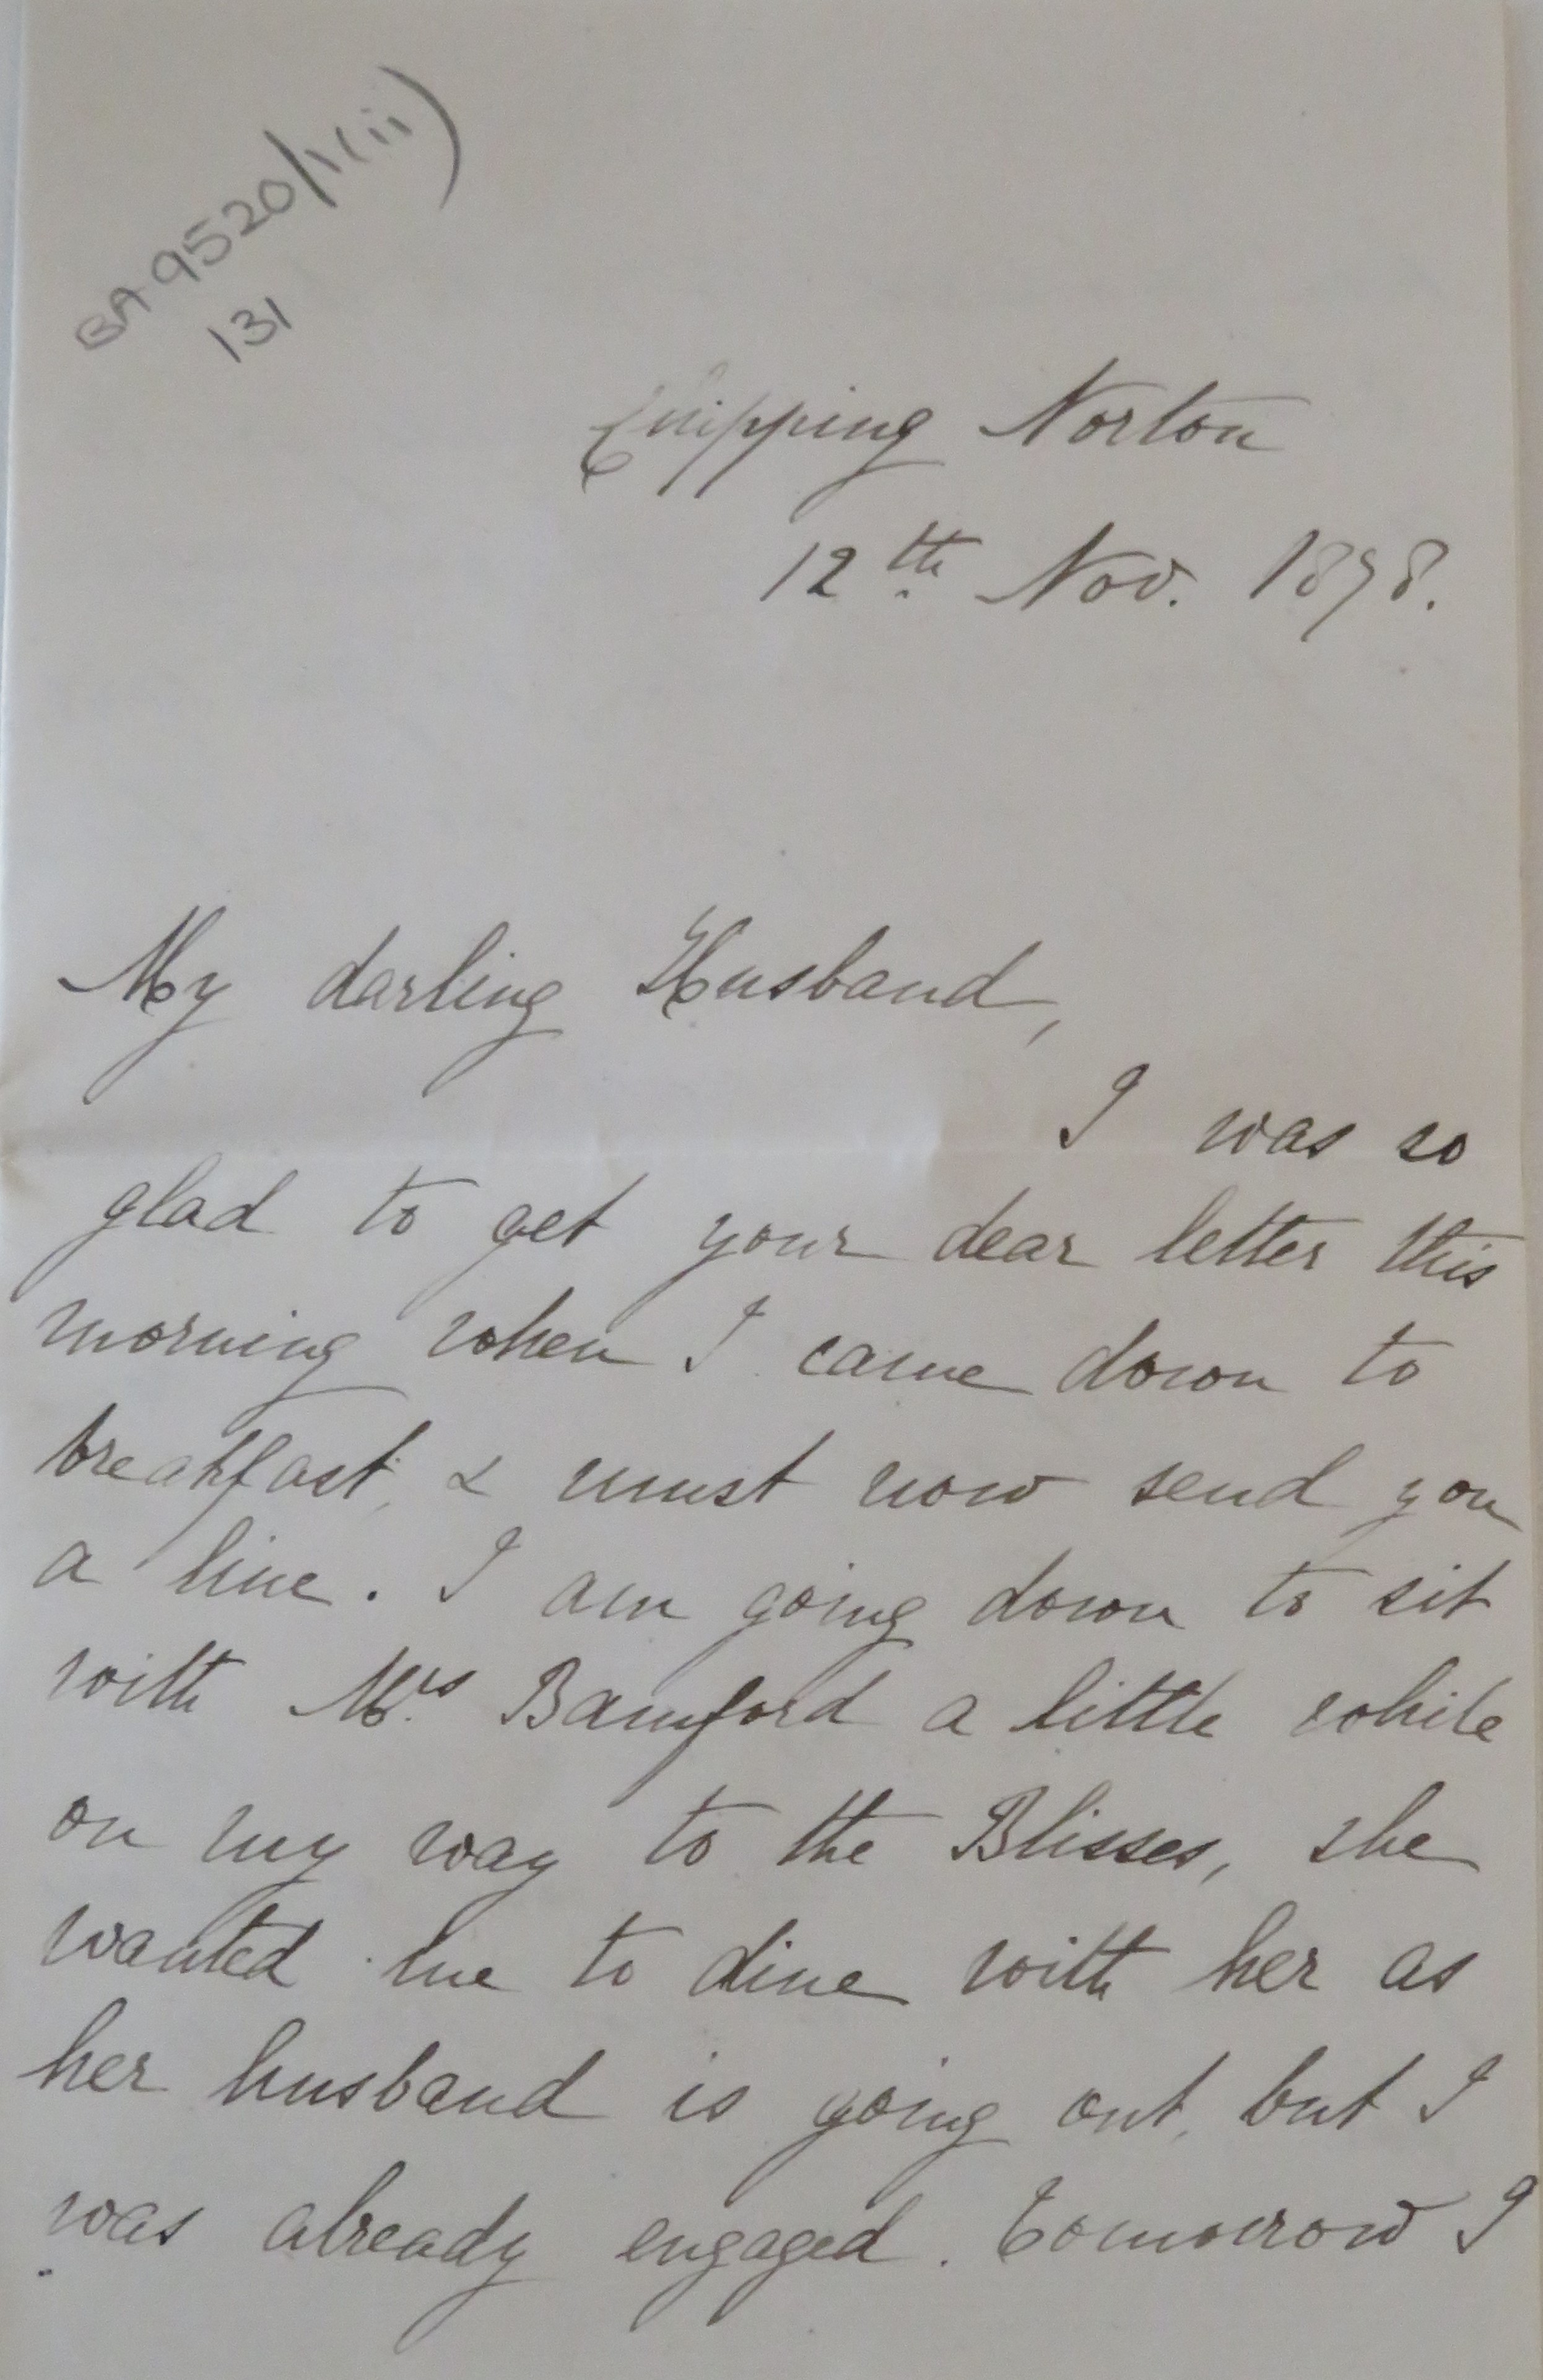 BA 9520/1(ii)
131
Chipping Norton
12th Nov. 1878.
My darling Husband,
I was so
glad to get your dear letter this
morning when I came down to
breakfast, & must now send you
a line. I am going down to sit
with Mrs Bamford a little while
on my way to the Blisses, she
wanted me to dine with her as
her husband is going out, but I
was already engaged. Tomorrow I